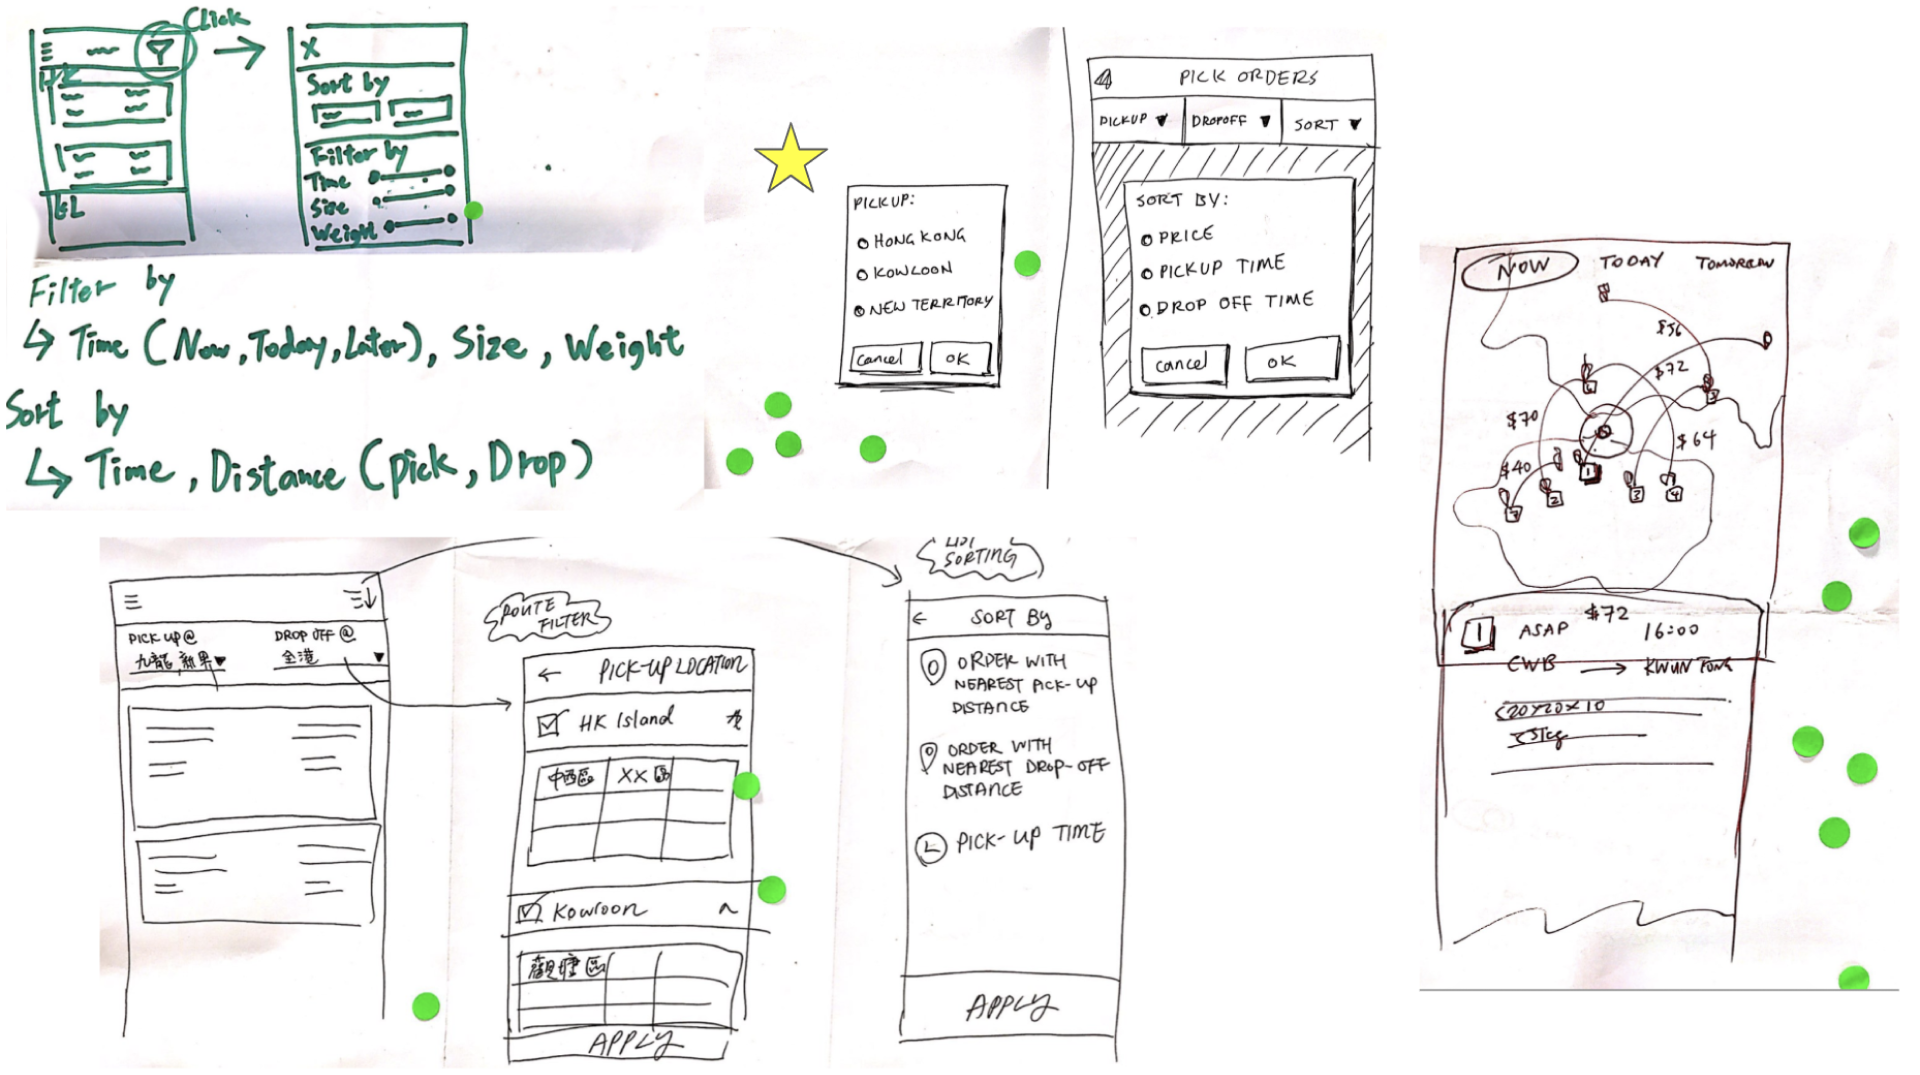 Click
HK
KL
X
Sort by
Filter by
Time
Size
Weight
Filter by
↳ Time (Now, Today, Later), Size, Weight
Sort by
↳ Time, Distance (pick, Drop)
PICKUP:
HONG KONG
KOWLOON
NEW TERRITORY
Cancel OK
PICK ORDERS
PICKUP ▼ DROPOFF ▼ SORT ▼
SORT BY:
PRICE
PICKUP TIME
DROP OFF TIME
Cancel OK
NOW TODAY TOMORROW
$56
$72
$70
$64
$40
6
5
1
2
3
4
7
$72
1 ASAP 16:00
CWB → KWUN TONG
20x20x10
5kg
PICK UP @ DROP OFF @
九龍, 新界 ▼ 全港 ▼
ROUTE
FILTER
← PICK-UP LOCATION
HK Island
中西區 XX區
Kowloon
觀塘區
APPLY
LIST
SORTING
← SORT BY
ORDER WITH
NEAREST PICK-UP
DISTANCE
ORDER WITH
NEAREST DROP-OFF
DISTANCE
PICK-UP TIME
APPLY